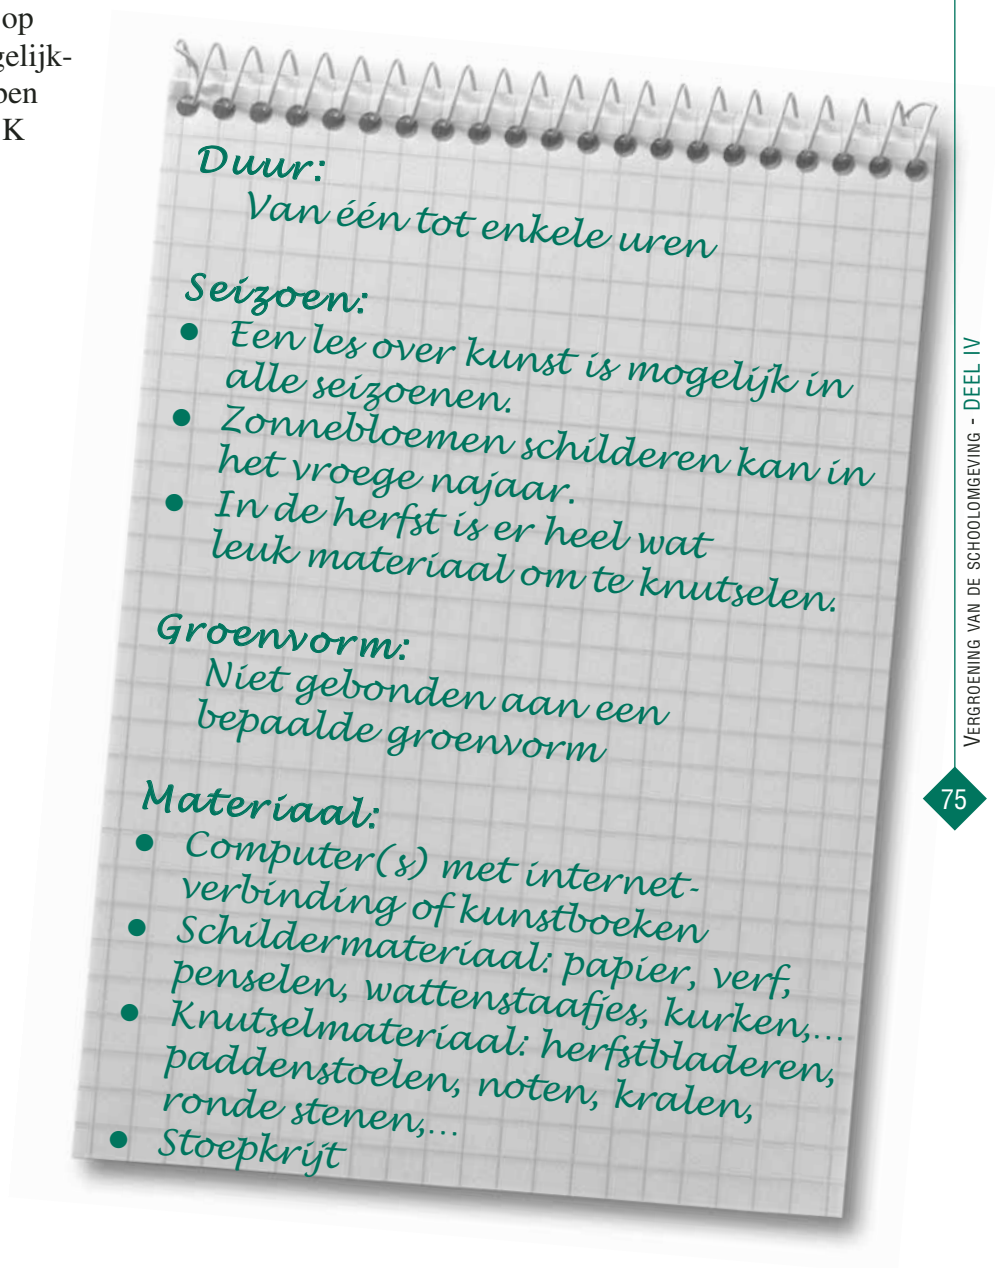 op
gelijk-
pen
K
Duur:
Van één tot enkele uren
Seizoen:
• Een les over kunst is mogelijk in
alle seizoenen.
• Zonnebloemen schilderen kan in
het vroege najaar.
• In de herfst is er heel wat
leuk materiaal om te knutselen.
Groenvorm:
Niet gebonden aan een
bepaalde groenvorm
Materiaal:
• Computer(s) met internet-
verbinding of kunstboeken
• Schildermateriaal: papier, verf,
penselen, wattenstaafjes, kurken,...
• Knutselmateriaal: herfstbladeren,
paddenstoelen, noten, kralen,
ronde stenen,...
• Stoepkrijt
VERGROENING VAN DE SCHOOLOMGEVING - DEEL IV
75